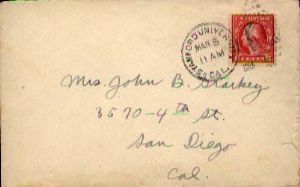 STANFORD UNIVERSITY
MAR 5
11 AM
CAL.
Mrs. John B. Starkey
3570-4th St.
San Diego
Cal.